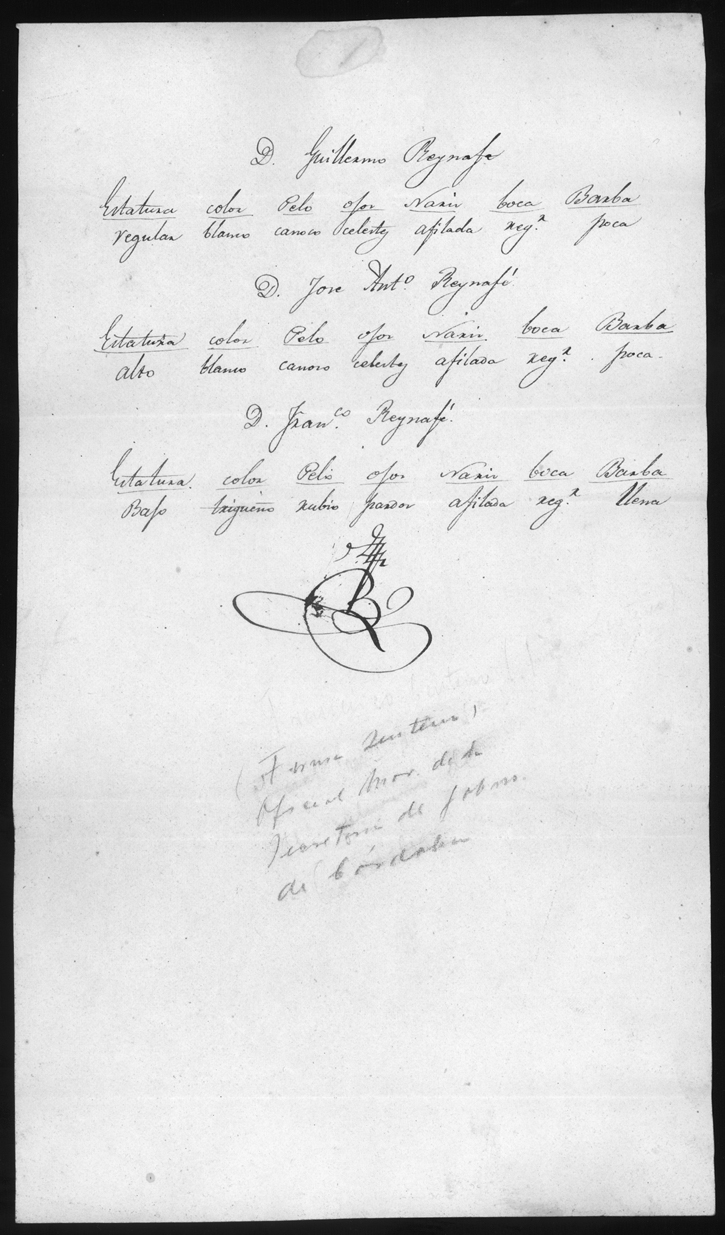 D. Guillermo Reynafe
Estatura color Pelo ojos Nariz boca Barba
regular blanco canoso celestes afilada reg.r poca
D. Jose Ant.o Reynafé
Estatura color Pelo ojos Nariz boca Barba
alto blanco canoso celestes afilada reg.r poca.
D. Fran.co Reynafé.
Estatura color Pelo ojos Nariz boca Barba
Bajo trigueño rubio pardos afilada reg.r llena
Oficial Mor. de la
Secretaria de gobno.
de Córdoba